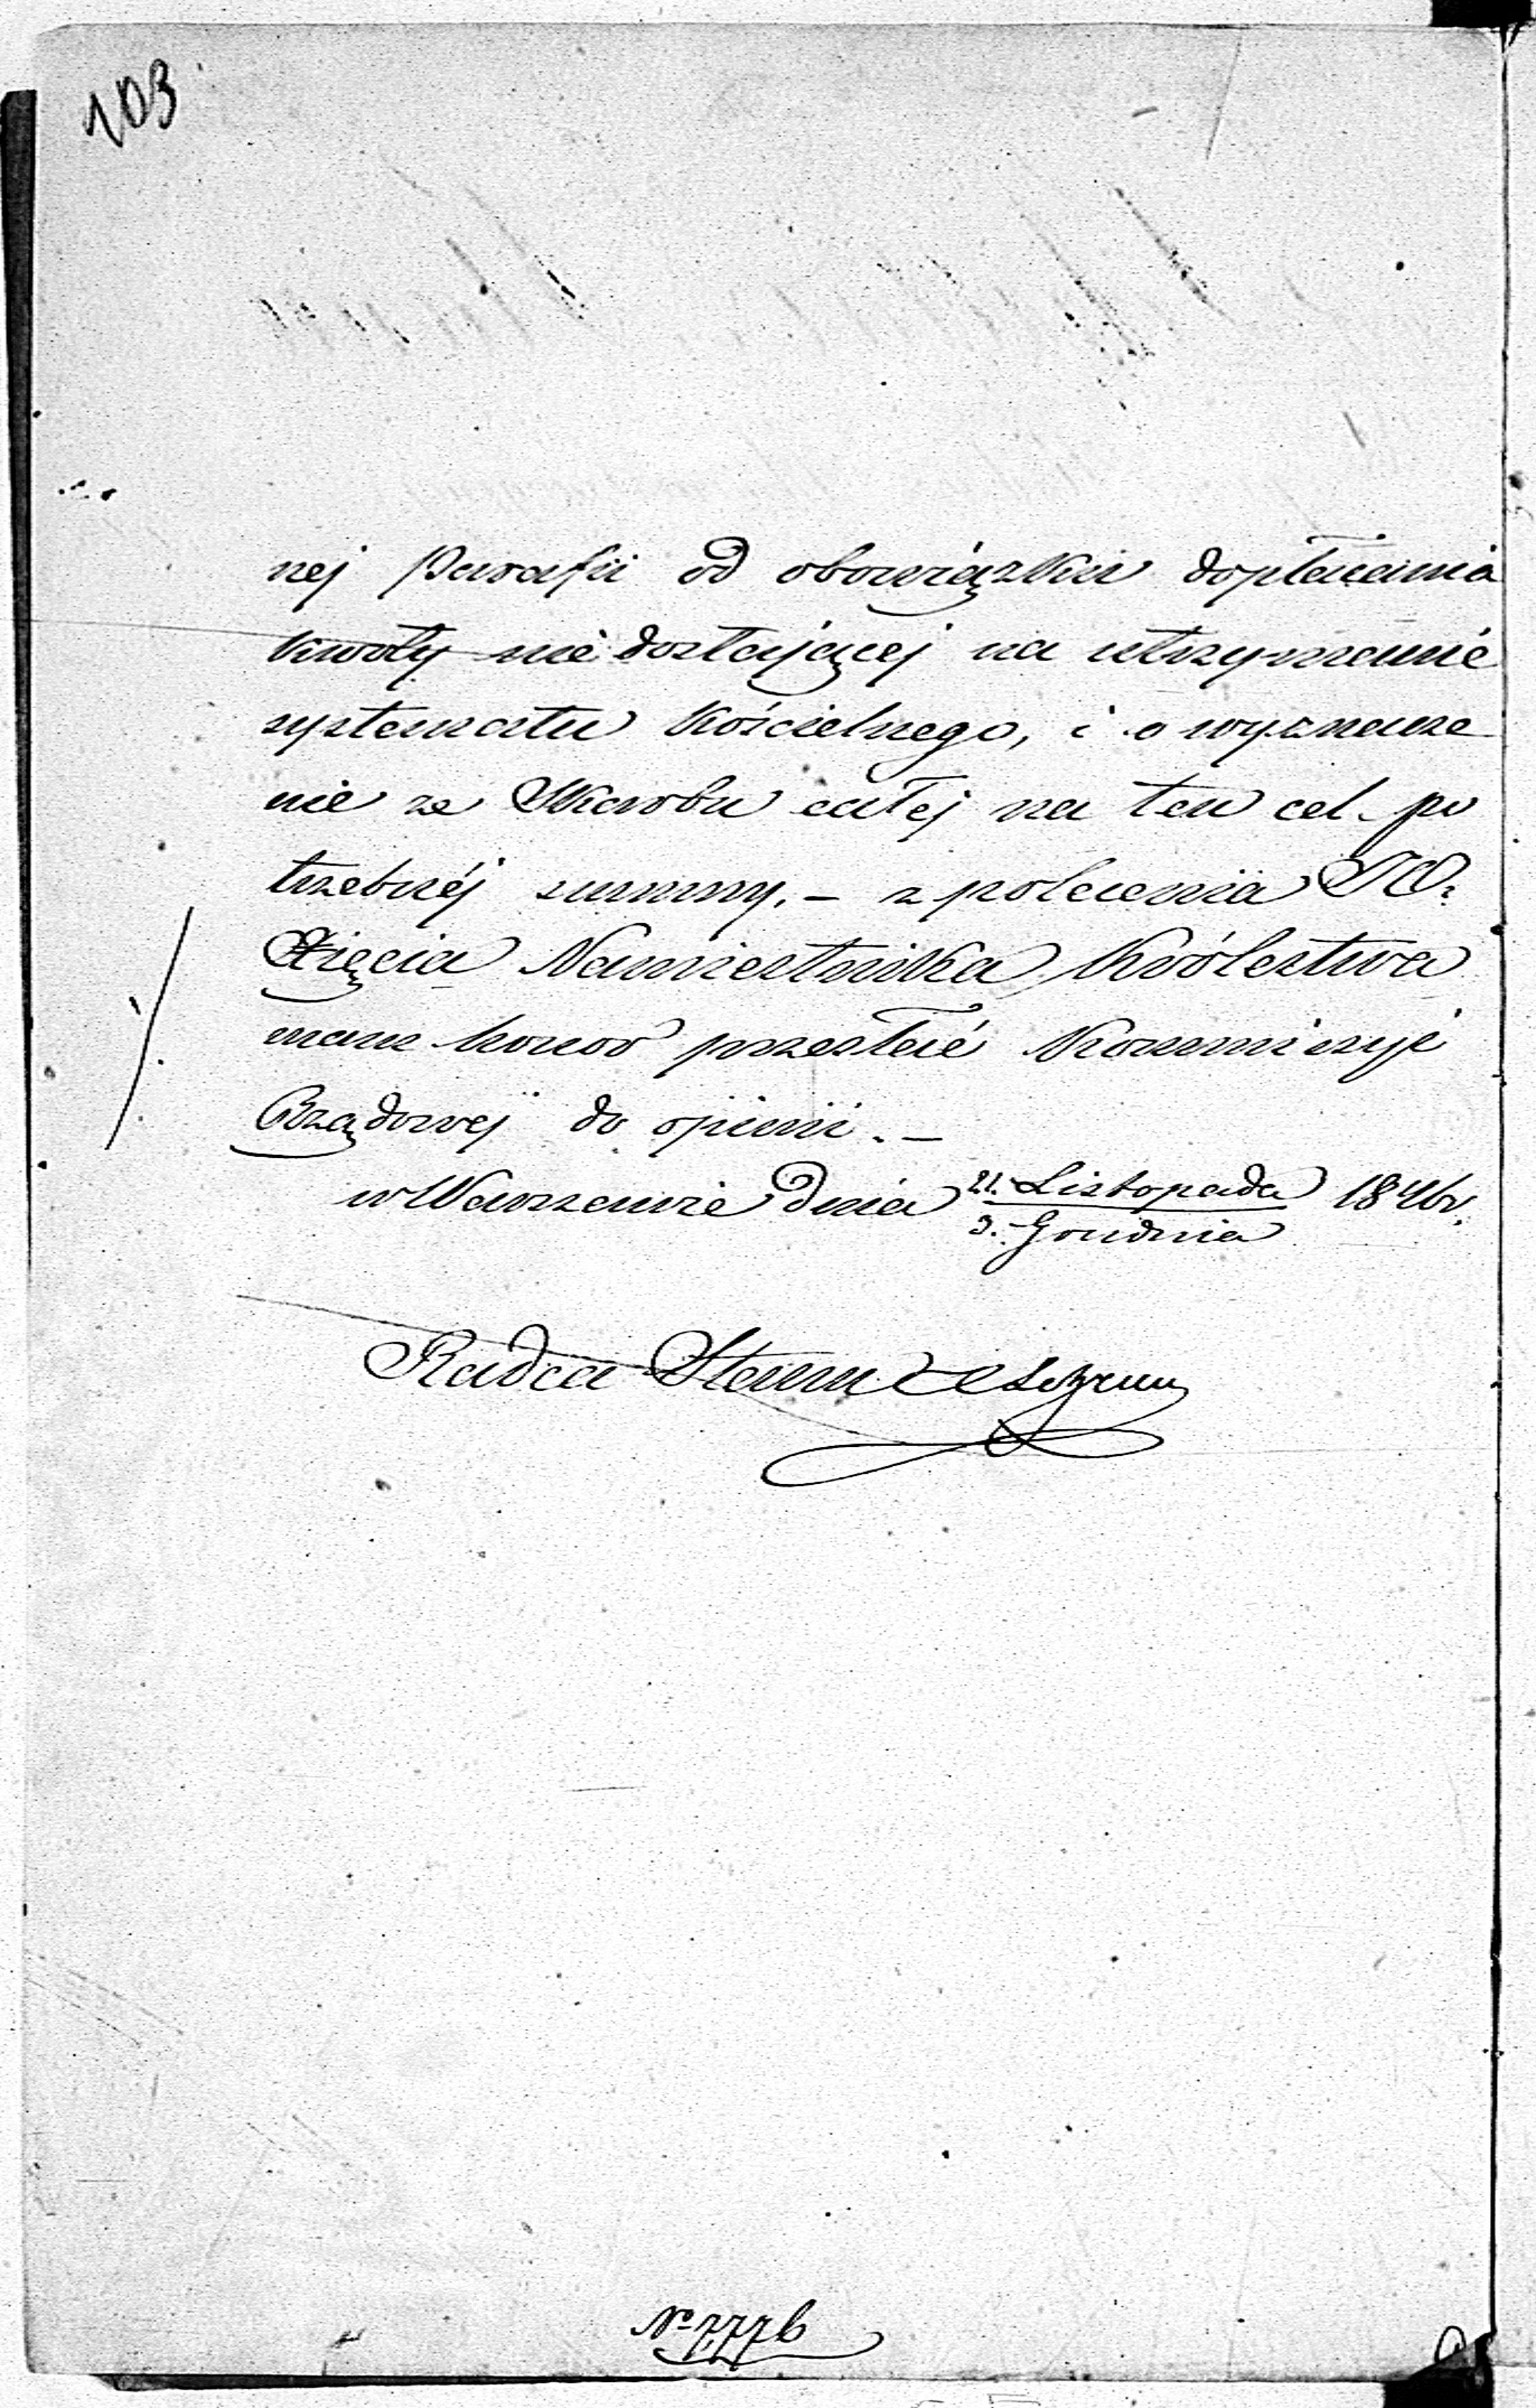 103
nej Parafii od obowiązku dopłacania
kwoty nie dostającej na utrzymanie
systematu Kościelnego, i o wyznacze
nie ze Skarbu całej na ten cel po
trzebnéj summy. – z polecenia JO.
Xięcia Namiestnika Królestwa
mam honor przesłać Kommissyi
Rządowej do opinii. –
w Warszawie dnia 21. Listopada 1846 r.
3. Grudnia
Radca Stanu
№ 7776